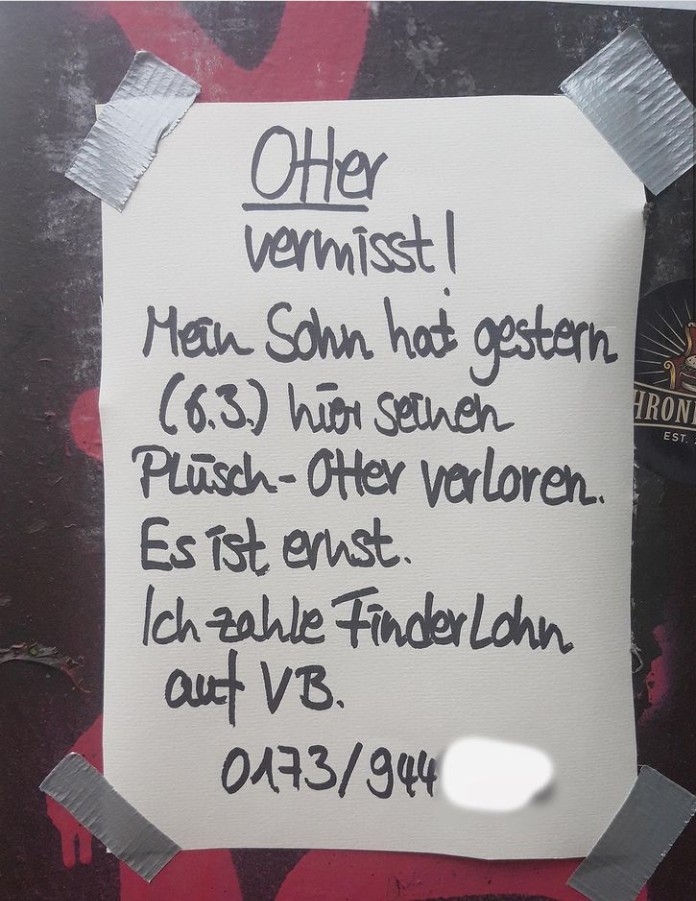 Otter
vermisst!
Mein Sohn hat gestern
(6.3.) hier seinen
Plüsch-Otter verloren.
Es ist ernst.
Ich zahle Finderlohn
auf VB.
0173/944
HRONI
EST.